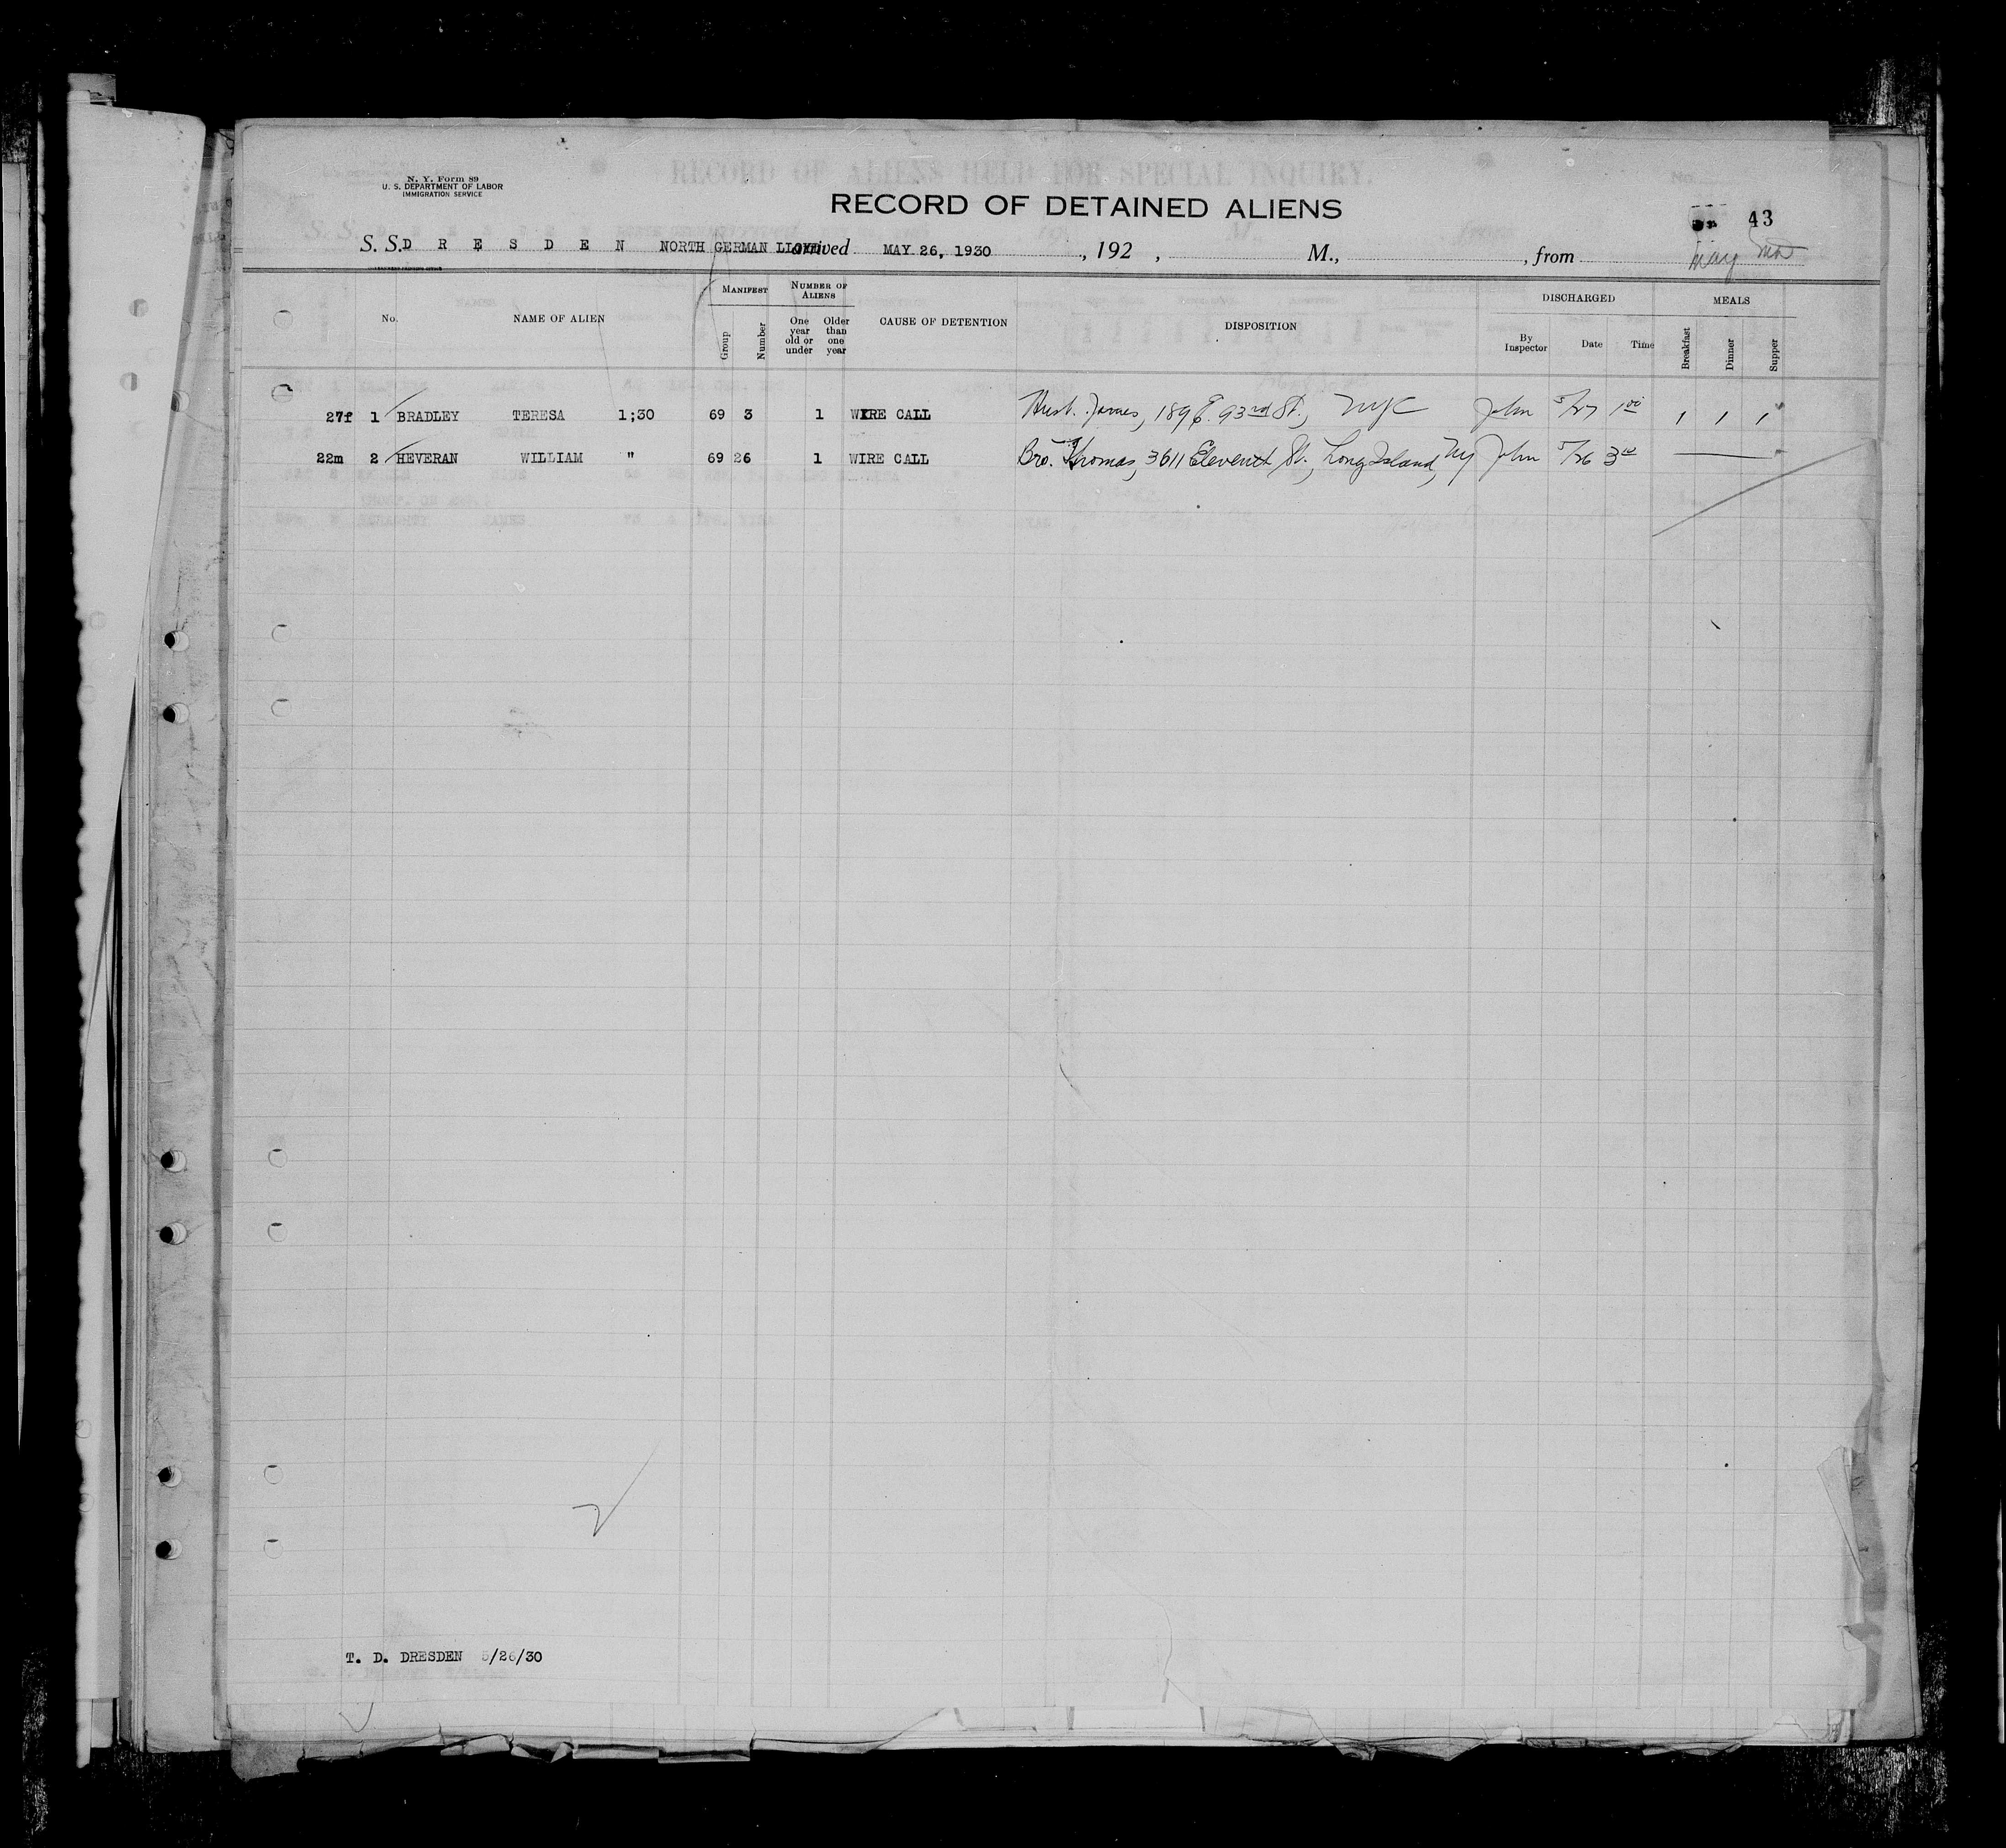 N. Y. Form 89
U. S. DEPARTMENT OF LABOR
IMMIGRATION SERVICE
RECORD OF ALIENS HELD FOR SPECIAL INQUIRY.
No.
RECORD OF DETAINED ALIENS
43
S. S. D R E S D E N NORTH GERMAN LLOYD arrived MAY 26, 1930, 192 , M., , from
May
No.
NAME OF ALIEN
MANIFEST
Group
Number
NUMBER OF ALIENS
One year old or under
Older than one year
CAUSE OF DETENTION
DISPOSITION
DISCHARGED
By Inspector
Date
Time
MEALS
Breakfast
Dinner
Supper
27f 1 BRADLEY TERESA 1;30 69 3 1 WIRE CALL Husb. James, 189 E. 93rd St., NYC John 5/27 1 00 1 1 1
22m 2 HEVERAN WILLIAM " 69 26 1 WIRE CALL Bro. Thomas, 3611 Eleventh St., Long Island, NY John 5/26 3 00
2
T. D. DRESDEN 5/26/30